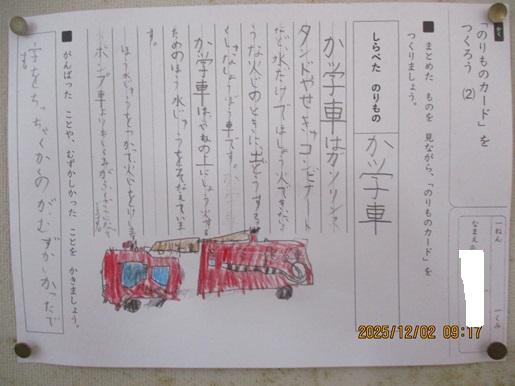 かく
「のりものカード」を
つくろう (2)
一ねん 一くみ
なまえ
■ まとめた ものを 見ながら、「のりものカード」を
つくりましょう。
しらべた のりもの
かがく車
かがく車はガソリンス
タンドやせきゆコンビナート
など水だけではしょう火できないよ
うな火じのときに出どうする
しょうぼう車です。
かがく車はやねの上にしょう火する
ためのほう水じゅうをそなえていま
す
ほう水じゅうをつかって火じをけします
■ がんばった ことや、むずかしかった ことを かきましょう。
字をちっちゃくかくのがむずかしかったで
す。
2025/12/02 09:17